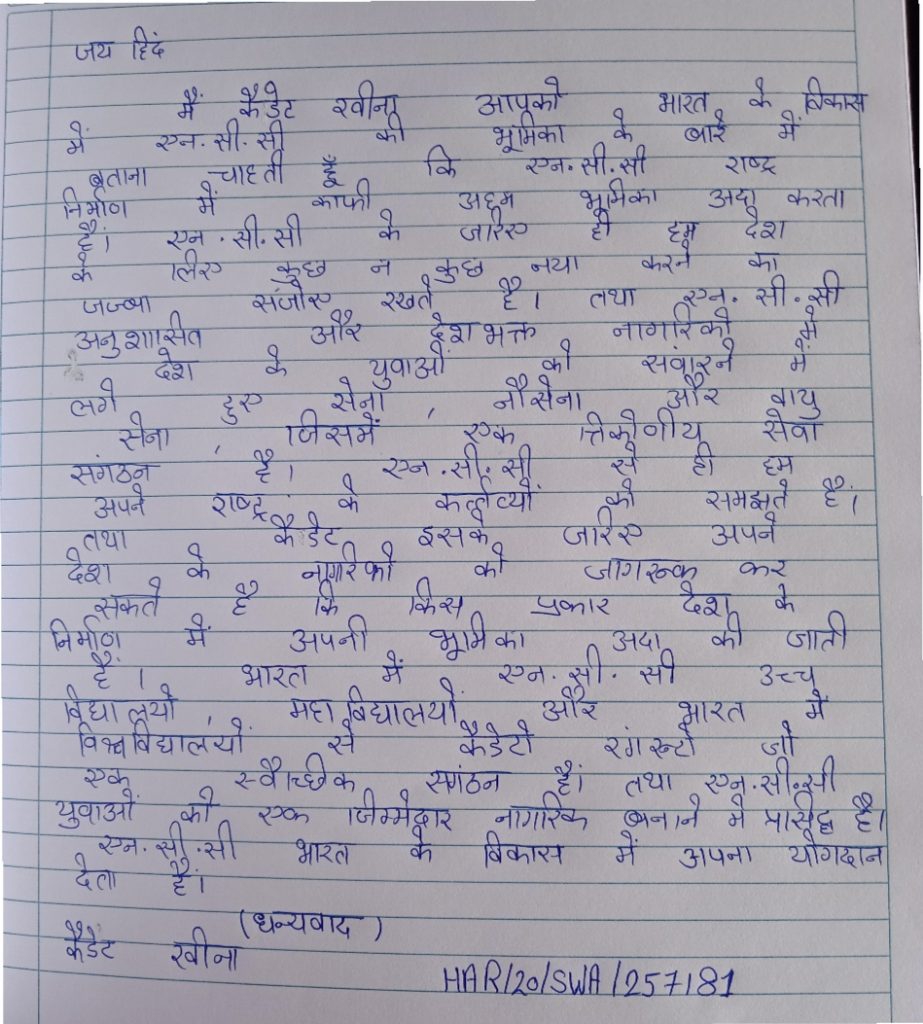 जय हिंद
मैं कैडेट रवीना आपको भारत के विकास
में एन.सी.सी की भूमिका के बारे में
बताना चाहती हूँ कि एन.सी.सी राष्ट्र
निर्माण में काफी अहम भूमिका अदा करता
है। एन.सी.सी के जरिए ही हम देश
के लिए कुछ न कुछ नया करने का
जज्बा संजोए रखते है। तथा एन.सी.सी
अनुशासित और देशभक्त नागरिको मे
देश के युवाओं को संवारने में
लगे हुए सेना, नौसेना और वायु
सेना, जिसमें एक त्रिकोणीय सेवा
संगठन है। एन.सी.सी से ही हम
अपने राष्ट्र के कर्तव्यों को समझते है।
तथा कैडेट इसके जरिए अपने
देश के नागरिको को जागरूक कर
सकते है कि किस प्रकार देश के
निर्माण में अपनी भूमिका अदा की जाती
है। भारत में एन.सी.सी उच्च
विद्यालयो, महाविद्यालयों और भारत में
विश्वविद्यालयों से कैडेटो रंगरूटो जो
एक स्वैच्छिक संगठन है। तथा एन.सी.सी
युवाओं को एक जिम्मेदार नागरिक बनाने मे प्रसिद्ध है।
एन.सी.सी भारत के विकास में अपना योगदान
देता है।
(धन्यवाद)
कैडेट रवीना
HAR/20/SWA/257181